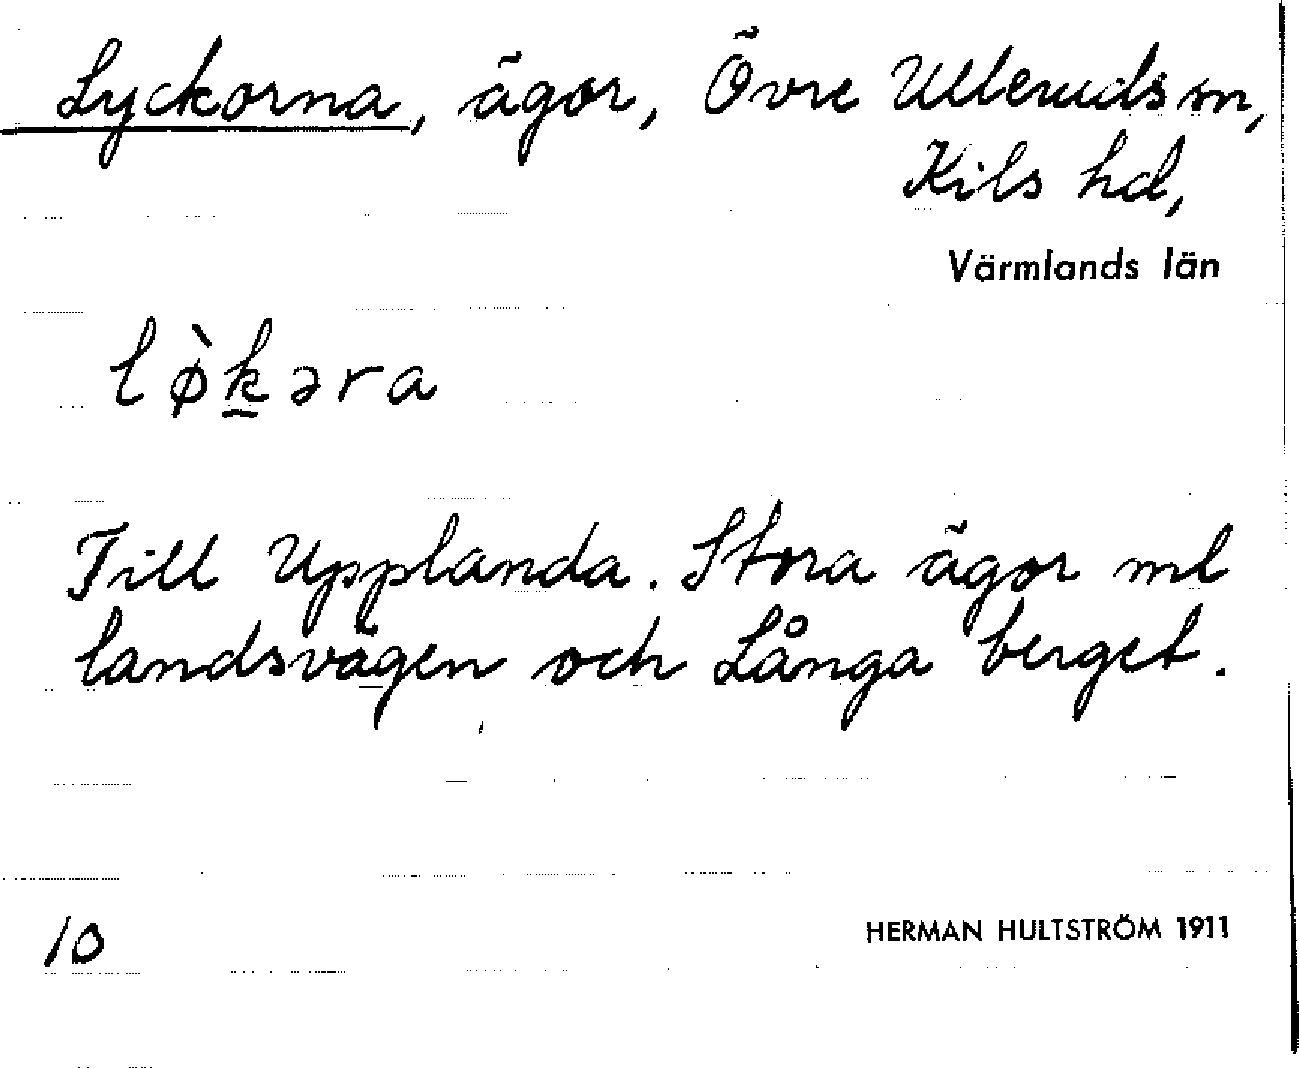 Lyckorna, ägor, Övre Ulleruds sn,
Kils hd,
Värmlands län
lø̀k̲əra
Till Upplanda. Stora ägor ml
landsvägen och Långa berget.
10
HERMAN HULTSTRÖM 1911